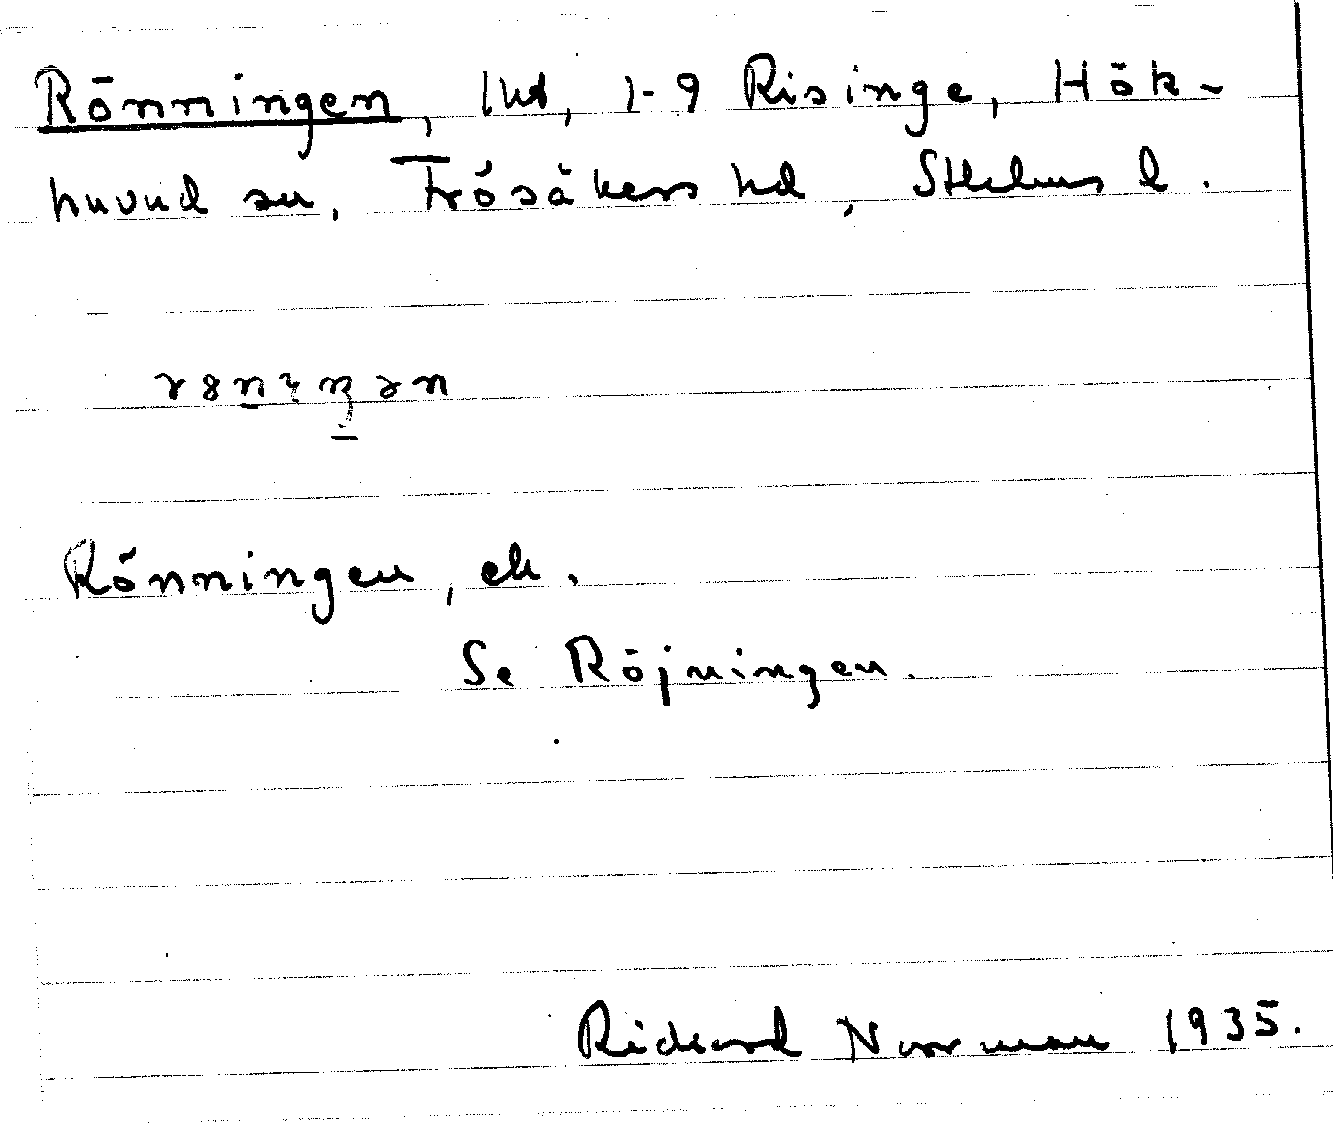 Rönningen, lhd, 1-9 Risinge, Hök-
huvud sn, Frösåkers hd, Sthlms l.
Rönningen, ek.
Se Röjningen.
Rickard Norrman 1935.